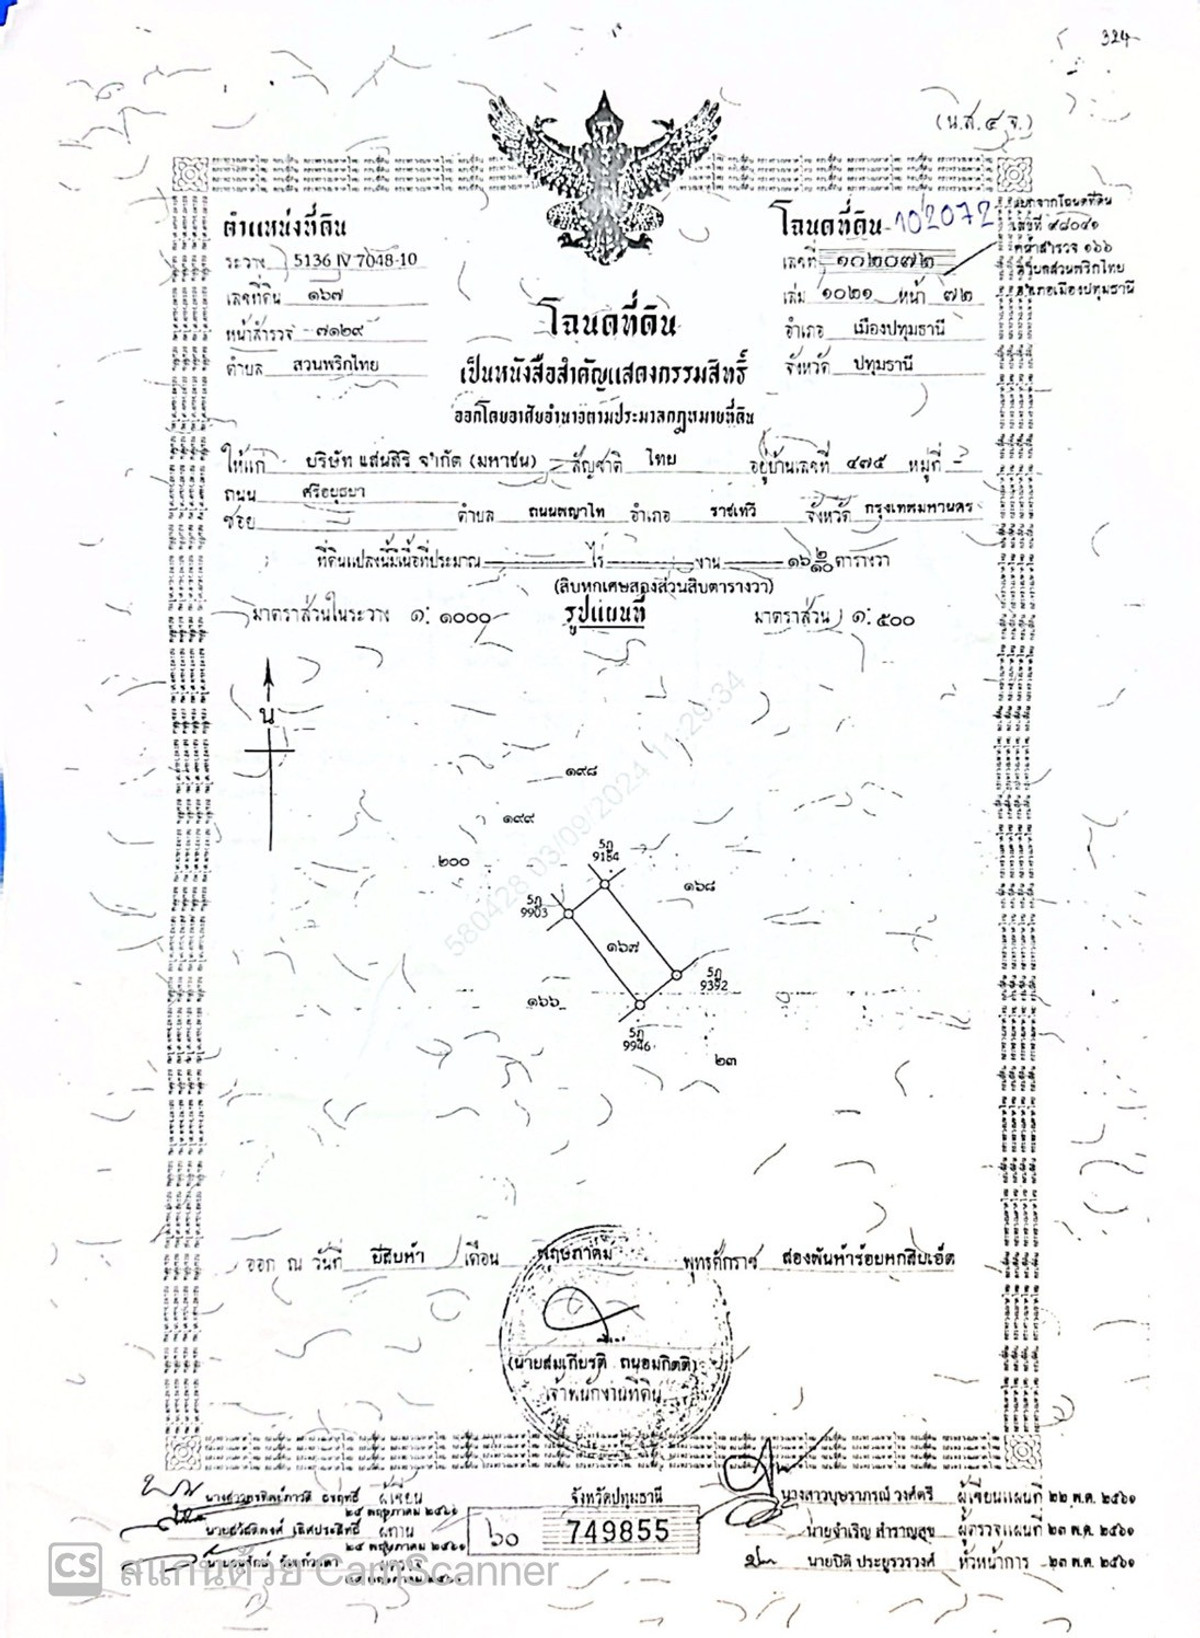 324
(น.ส.๔ จ.)
ตำแหน่งที่ดิน
ระวาง 5136 IV 7048-10
เลขที่ดิน ๑๖๗
หน้าสำรวจ ๗๑๒๙
ตำบล สวนพริกไทย
โฉนดที่ดิน 102072
เลขที่ ๑๐๒๐๗๒
เล่ม ๑๐๒๑ หน้า ๗๒
อำเภอ เมืองปทุมธานี
จังหวัด ปทุมธานี
แยกจากโฉนดที่ดิน
เลขที่ ๙๘๐๙๑
หน้าสำรวจ ๑๖๖
ตำบลสวนพริกไทย
อำเภอเมืองปทุมธานี
โฉนดที่ดิน
เป็นหนังสือสำคัญแสดงกรรมสิทธิ์
ออกโดยอาศัยอำนาจตามประมวลกฎหมายที่ดิน
ให้แก่ บริษัท แสนสิริ จำกัด (มหาชน) สัญชาติ ไทย อยู่บ้านเลขที่ ๔๗๕ หมู่ที่ -
ถนน ศรีอยุธยา
ซอย - ตำบล ถนนพญาไท อำเภอ ราชเทวี จังหวัด กรุงเทพมหานคร
ที่ดินแปลงนี้มีเนื้อที่ประมาณ - ไร่ - งาน ๑๖ ๒/๑๐ ตารางวา
(สิบหกเศษสองส่วนสิบตารางวา)
มาตราส่วนในระวาง ๑: ๑๐๐๐ รูปแผนที่ มาตราส่วน ๑: ๕๐๐
น
๑๙๘
๑๙๙
๒๐๐
5ภ
9184
๑๖๘
5ภ
9903
๑๖๗
5ภ
9392
๑๖๖
5ภ
9946
๒๓
580428 03/09/2024 11:29:34
ออก ณ วันที่ ยี่สิบห้า เดือน พฤษภาคม พุทธศักราช สองพันห้าร้อยหกสิบเอ็ด
(นายสมเกียรติ ถนอมกิตติ)
เจ้าพนักงานที่ดิน
ผู้เขียน
๒๔ พฤษภาคม ๒๕๖๑
ผู้ทาน
๒๔ พฤษภาคม ๒๕๖๑
จังหวัดปทุมธานี
๖๐ 749855
นางสาวบุษราภรณ์ วงศ์ตรี ผู้เขียนแผนที่ ๒๒ พ.ค. ๒๕๖๑
นายจำเริญ สำราญสุข ผู้ตรวจแผนที่ ๒๓ พ.ค. ๒๕๖๑
นายปิติ ประยูรวรวงศ์ หัวหน้าการ ๒๓ พ.ค. ๒๕๖๑
CS สแกนด้วย CamScanner